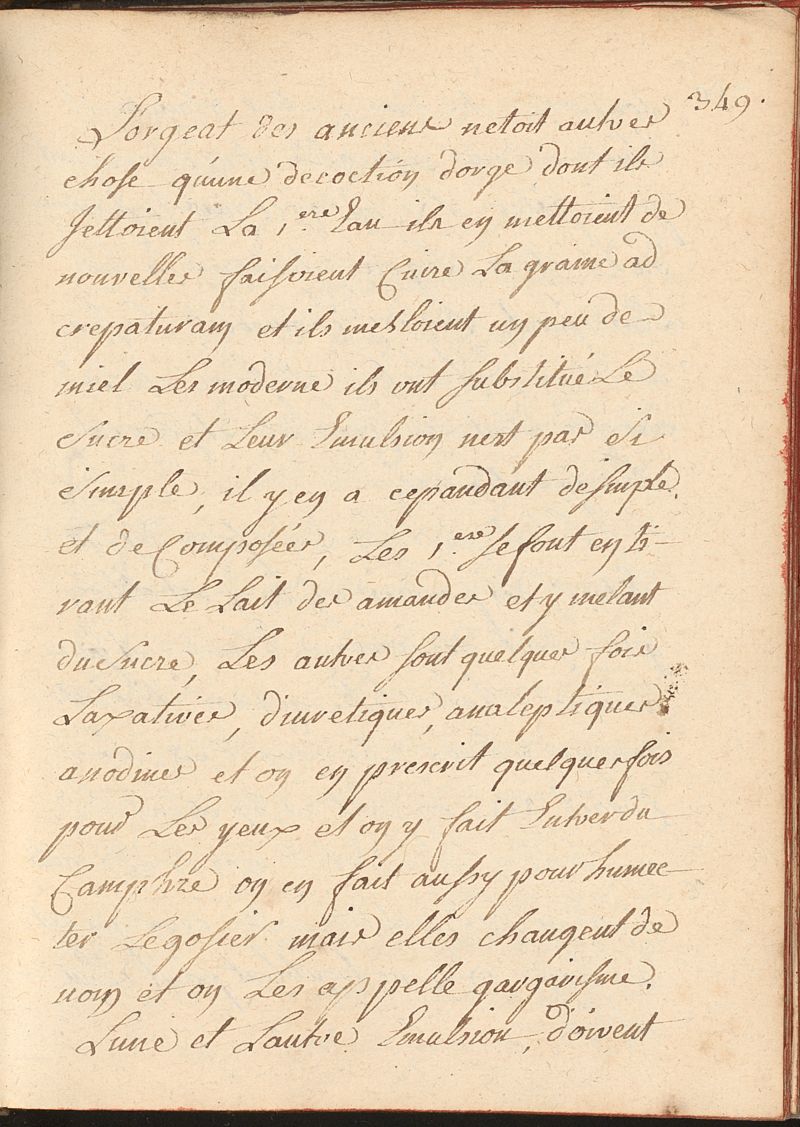 349.
L'orgeat des anciens netoit autres
chose qu'une decoction dorge dont ils
Jettoient La 1.ere Eau ils en mettoient de
nouvelles faisoient Cuire La graine ad
crepaturam et ils mesloient un peu de
miel Les moderne ils ont substitué Le
Sucre et Leur Emulsion nest pas si
Simple, il y en a cepandant de simple.
et de Composées, Les 1.ere se font en ti-
rant Le Lait des amandes et y melant
du Sucre, Les autres sont quelques fois
Laxatives, diuretiques, analeptiques
anodines et on en prescrit quelques fois
pour Les yeux et on y fait Entrer du
Camphre on en fait aussy pour humec-
ter Le gosier mais elles changent de
nom et on Les appelle gargarisme.
Lune et Lautre Emulsion, doivent